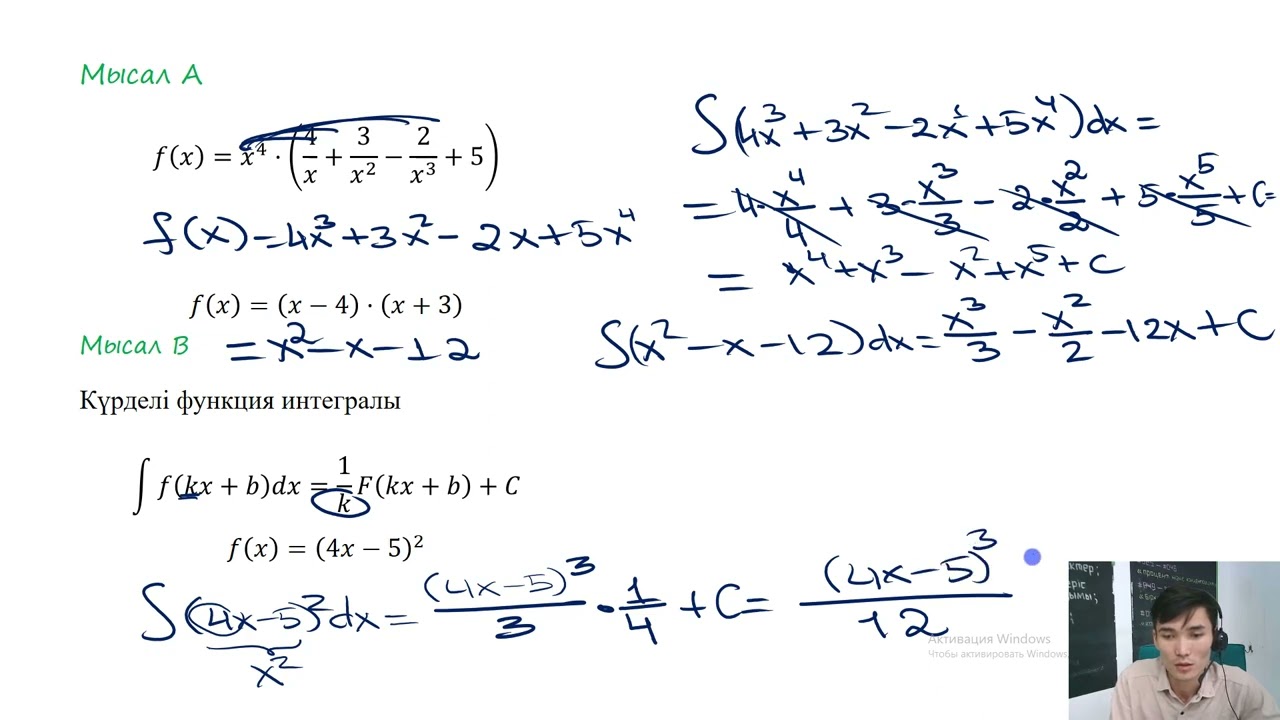 Мысал А
f(x) = x⁴ · (4/x + 3/x² − 2/x³ + 5)
f(x) = 4x³ + 3x² − 2x + 5x⁴
f(x) = (x − 4) · (x + 3)
Мысал В
= x² − x − 12
∫(4x³ + 3x² − 2x¹ + 5x⁴)dx =
= 4·x⁴/4 + 3·x³/3 − 2·x²/2 + 5·x⁵/5 + C =
= x⁴ + x³ − x² + x⁵ + C
∫(x² − x − 12)dx = x³/3 − x²/2 − 12x + C
Күрделі функция интегралы
∫ f(kx + b)dx = 1/k F(kx + b) + C
f(x) = (4x − 5)²
∫(4x−5)²dx = (4x−5)³/3 · 1/4 + C = (4x−5)³/12
x²
Активация Windows
Чтобы активировать Windows